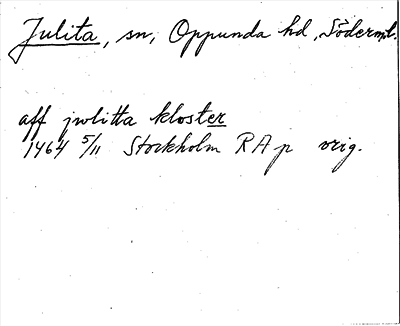 Julita, sn, Oppunda hd, Söderml.
aff jwlitta kloster
1464 5/11 Stockholm RAp orig.